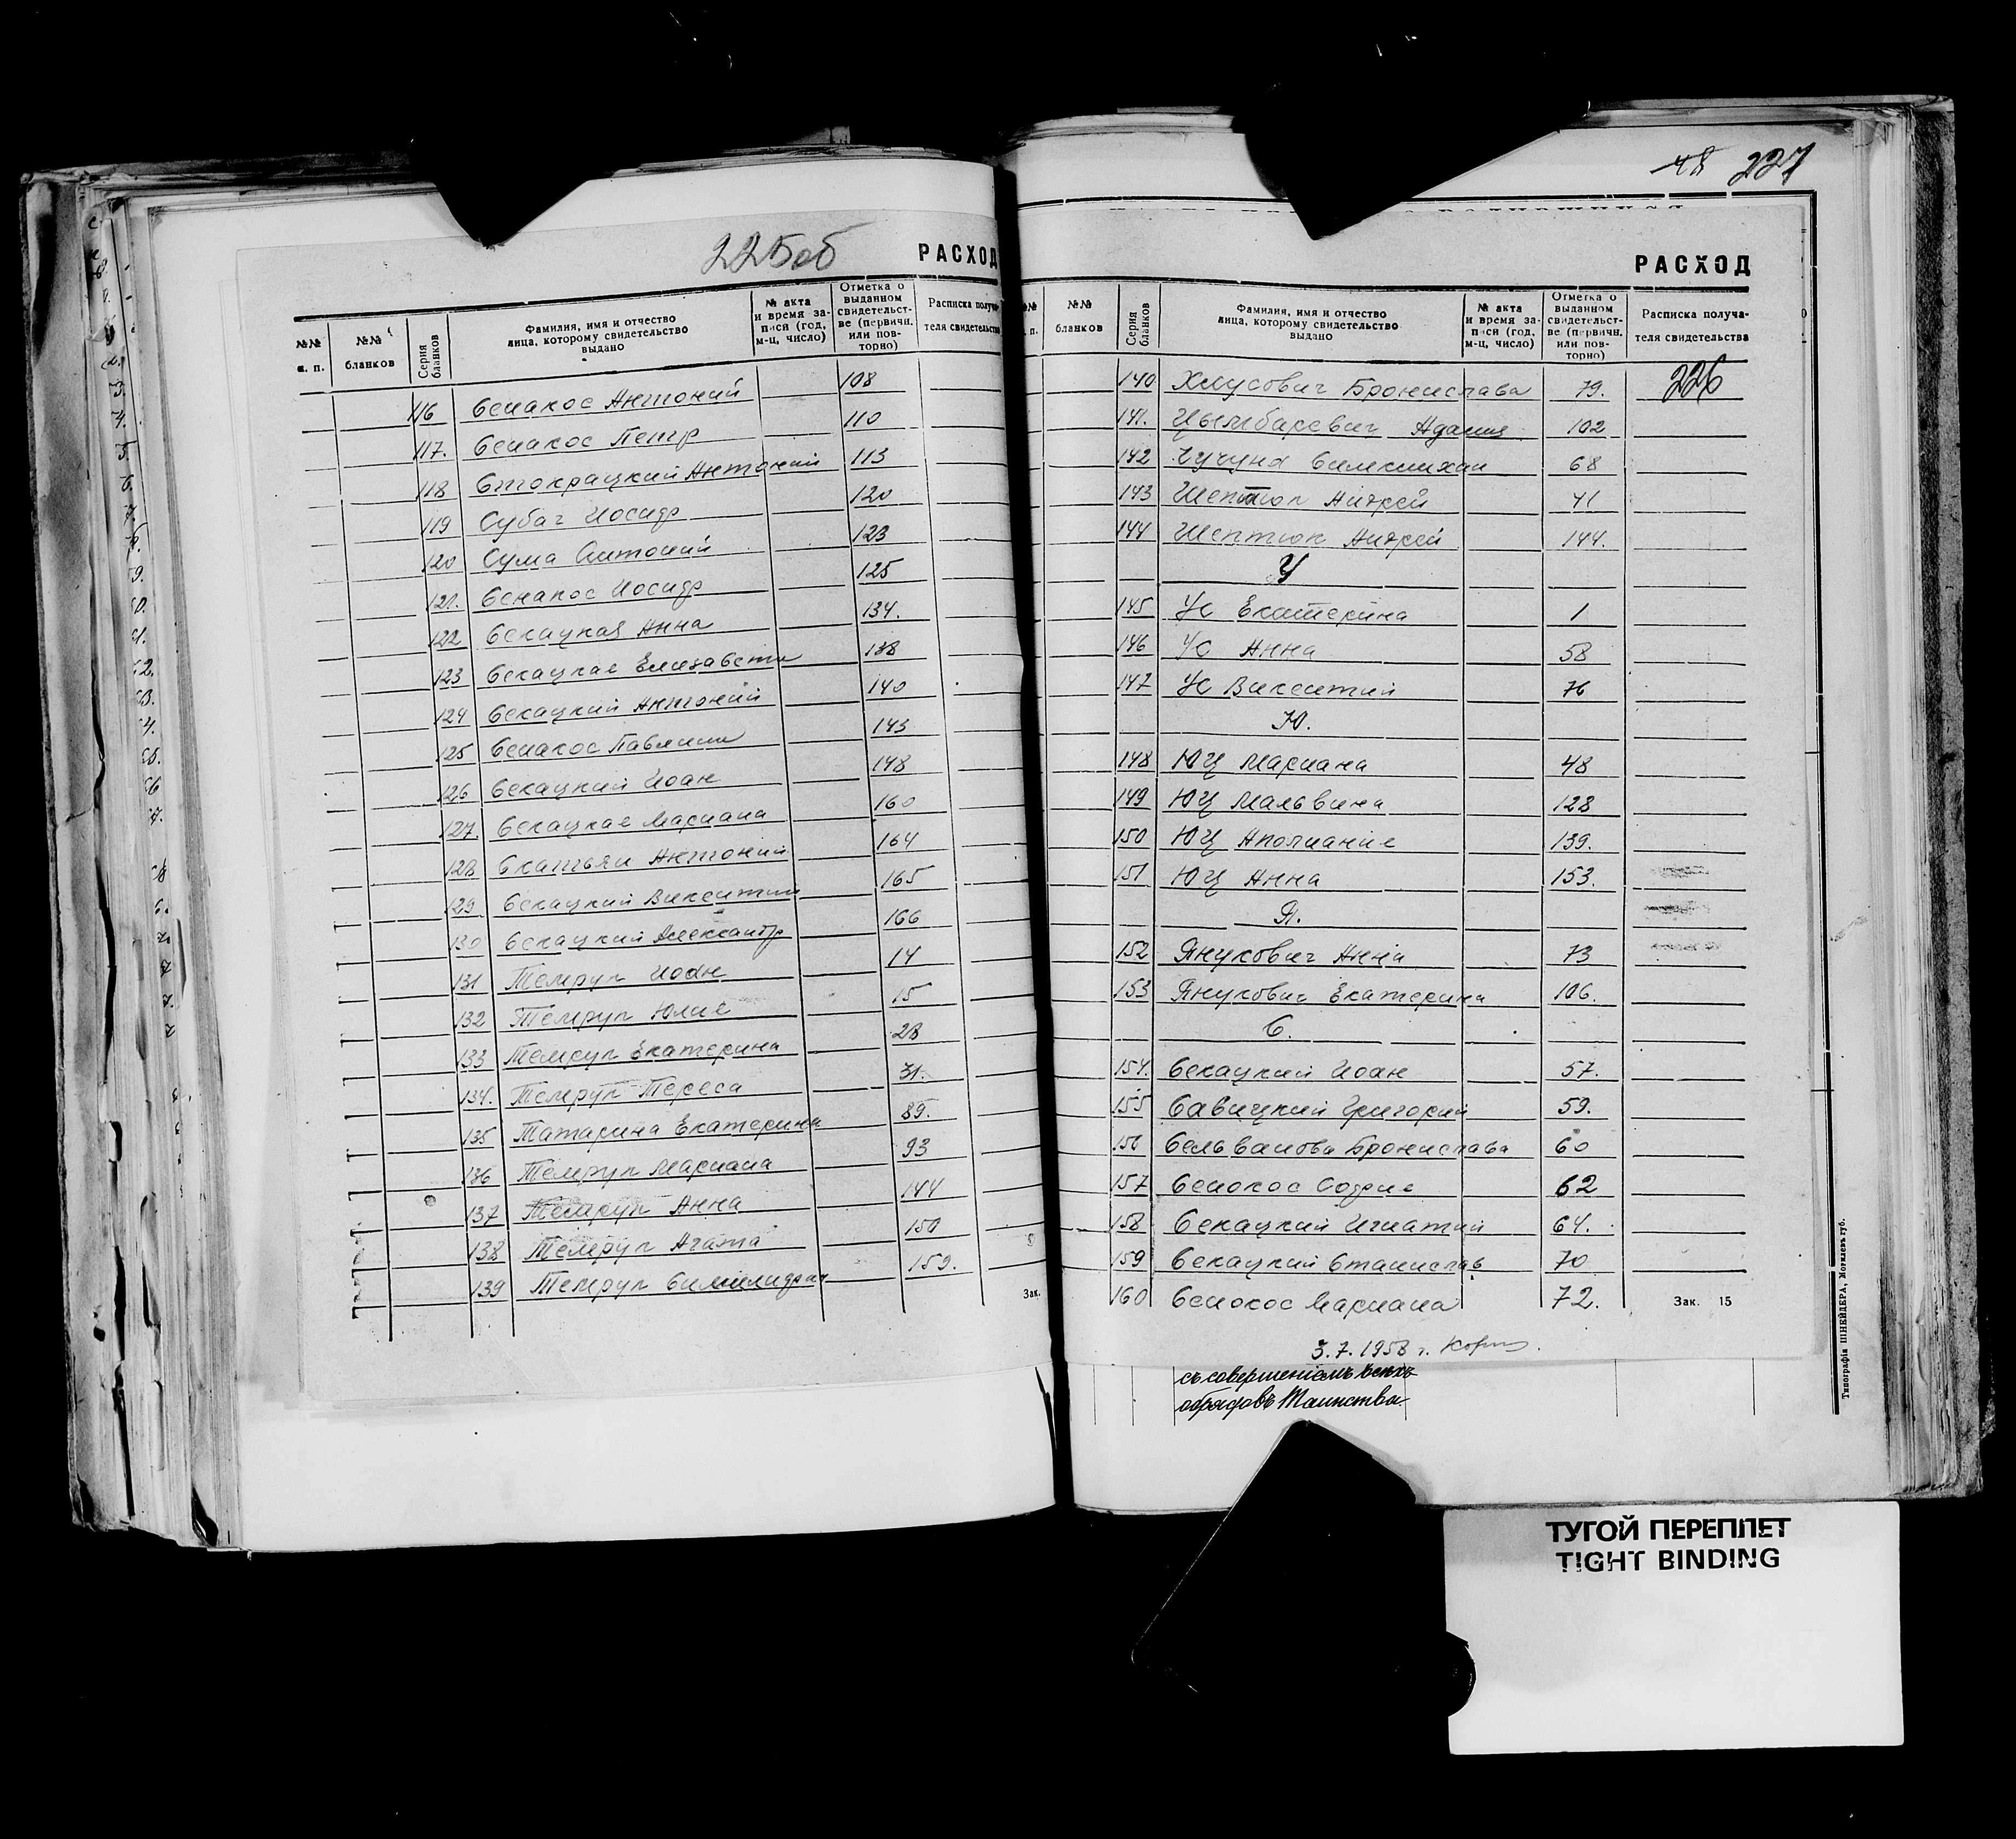 225об РАСХОД
№№ п. п. №№ бланков Серия бланков Фамилия, имя и отчество лица, которому свидетельство выдано № акта и время записи (год, м-ц, число) Отметка о выданном свидетельстве (первичн. или повторно) Расписка получателя свидетельства
116 Сенакос Антоний 108
117. Сенакос Петр 110
118 Стокрацкий Антоний 113
119 Субач Иосиф 120
120 Сума Антоний 123
121. Сенакос Иосиф 125
122 Секацкая Анна 134.
123 Секацкая Елизавета 138
124 Секацкий Антоний 140
125 Сенакос Павлина 143
126 Секацкий Иоан 148
127. Секацкая Мариана 160
128 Антоний 164
129 Секацкий Викентий 165
130 Секацкий Александр 166
131 Темрук Иоан 14
132 Темрук Юлия 15
133 Темрук Екатерина 28
134. Темрук Тереса 31.
135 Татарина Екатерина 89.
136 Темрук Мариана 93
137 Темрук Анна 144
138 Темрук Агата 150
139 Темрук 159.
Зак.
48 227
РАСХОД
№№ п. №№ бланков Серия бланков Фамилия, имя и отчество лица, которому свидетельство выдано № акта и время записи (год, м-ц, число) Отметка о выданном свидетельстве (первичн. или повторно) Расписка получателя свидетельства
140 Хмусович Бронислава 79. 226
141. Цымбаревич 102
142 Чучуна 68
143 Шептюк Андрей 41
144 Шептюк Андрей 144.
У
145 Ус Екатерина 1
146 Ус Анна 58
147 Ус Викентий 76
Ю.
148 Юц Мариана 48
149 Юц Мальвина 128
150 Юц 139.
151 Юц Анна 153.
Я.
152 Янукович Анна 73
153 Янукович Екатерина 106.
С.
154. Секацкий Иоан 57.
155 Савицкий Григорий 59.
156 Сельванова Бронислава 60
157 Сенокос София 62
158 Секацкий Игнатий 64.
159 Секацкий Станислав 70
160 Сенокос Мариана 72. Зак. 15
3.7.1958 г.
съ совершеніемъ всѣхъ
обрядовъ Таинства.
Типографія ШНЕЙДЕРА, Могилевъ губ.
ТУГОЙ ПЕРЕПЛЕТ
TIGHT BINDING